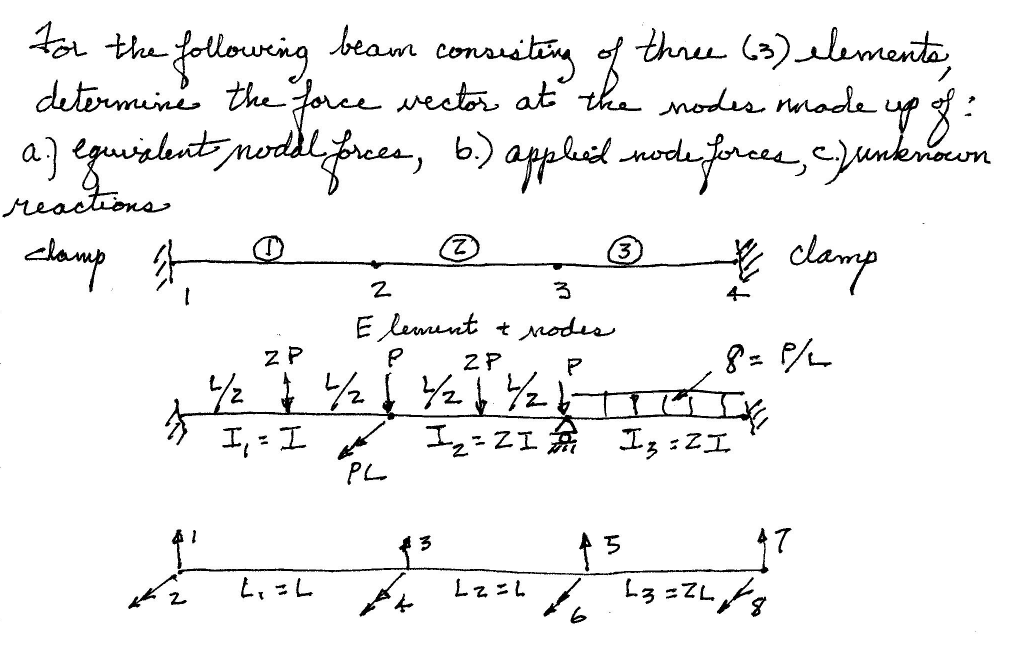 For the following beam consisting of three (3) elements,
determine the force vector at the nodes made up of:
a.) equivalent nodal forces, b.) applied node forces, c.) unknown
reactions
clamp ① ② ③ clamp
1 2 3 4
Element + nodes
2P P 2P P q = P/L
L/2 L/2 L/2 L/2
I₁ = I I₂ = 2I I₃ = 2I
PL
1 3 5 7
L₁ = L L₂ = L L₃ = 2L
2 4 6 8